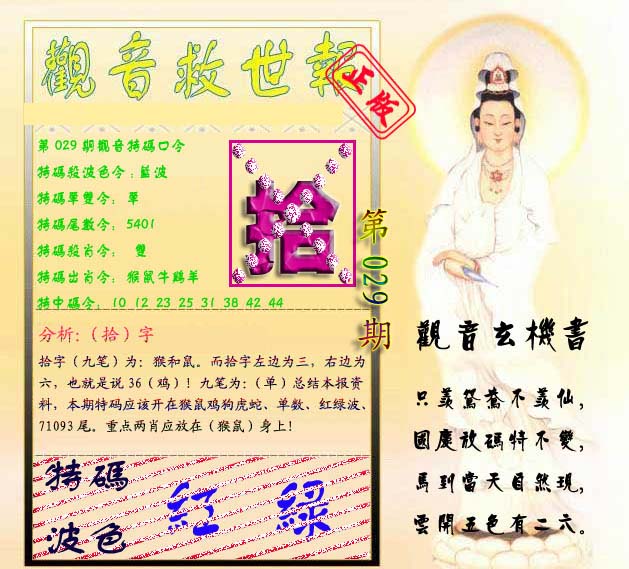 觀音救世報
正版
第029期觀音特碼口令
特碼殺波色令:藍波
特碼單雙令: 單
特碼尾數令: 5401
特碼殺肖令: 雙
特碼出肖令: 猴鼠牛鷄羊
特中碼令: 10 12 23 25 31 38 42 44
拾
第029期
分析:（拾）字
拾字（九笔）为: 猴和鼠。而拾字左边为三，右边为
六，也就是说 36（鸡）！九笔为:（单）总结本报资
料，本期特码应该开在猴鼠鸡狗虎蛇、单数、红绿波、
71093 尾。重点两肖应放在（猴鼠）身上！
特碼
波色
紅 綠
觀音玄機書
只羨鴛鴦不羨仙，
國慶放碼特不變，
馬到當天自然現，
雲開五色有二六。